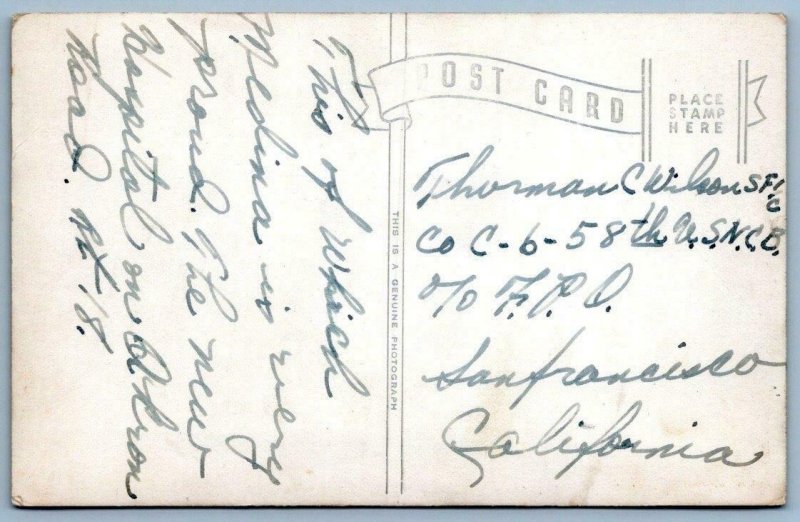 This of which
Medina is very
proud. The new
Hospital on Akron
road. Rt 18.
POST CARD
PLACE
STAMP
HERE
THIS IS A GENUINE PHOTOGRAPH
Thurman C Wilson SF 1/c
Co C-6-58th U.S.N.C.B.
c/o F.P.O.
Sanfrancisco
California